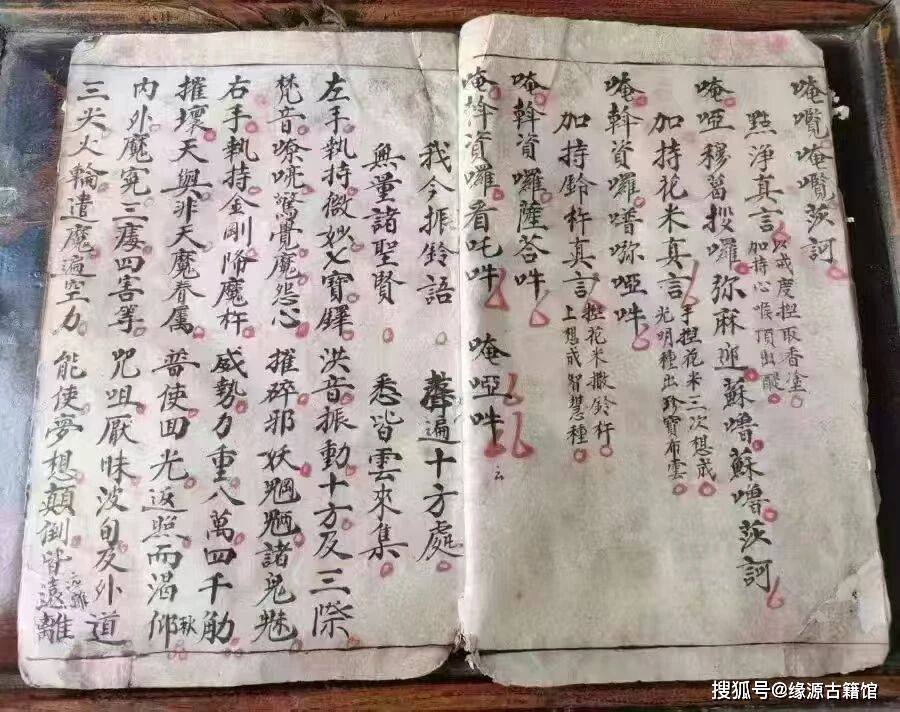 唵㘕唵㘕莎訶
點淨真言 以戒度揑取香塗
加持心喉頂出醍
唵啞穆葛拶囉弥麻迎蘇嚕蘇嚕莎訶
加持花米真言 手揑花米三次想成
光明種出珍寶布雲
唵斡資囉唶弥啞吽
加持鈴杵真言 揑花米撒鈴杵
上想戒智慧種
唵斡資囉薩荅吽
唵斡資囉看吒吽 唵啞吽 云
我今振鈴語 聲遍十方處
無量諸聖賢 悉皆雲來集
左手執持微妙七寶鐸 洪音振動十方及三際
梵音嘹喨驚覺魔怨心 摧碎邪妖魍魎諸鬼魅
右手執持金剛降魔杵 威勢力重八萬四千觔
摧壞天與非天魔眷属 普使回光返照而渴仰 秋
內外魔冤三灾四害等 咒咀厭昧波旬及外道
三尖火輪遣魔遍空力 能使夢想顛倒皆遠離